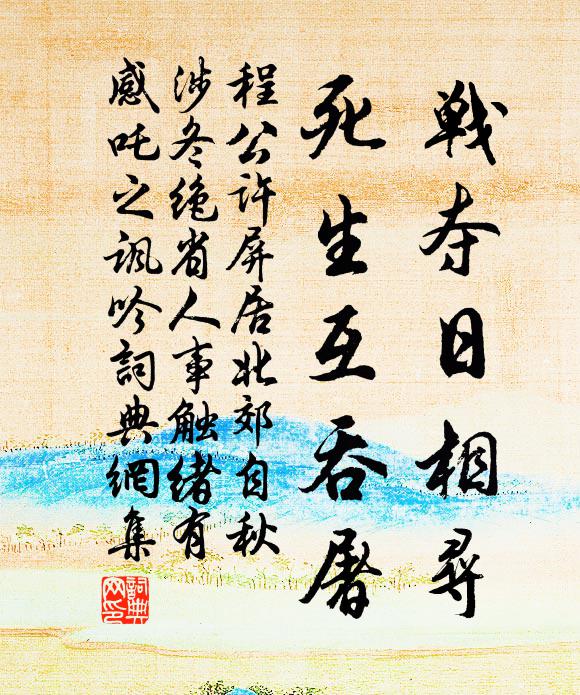 战夺日相寻
死生互吞屠
程公许屏居北郊自秋
涉冬绝省人事触绪有
感吒之讽吟詞典網集
詞典网印